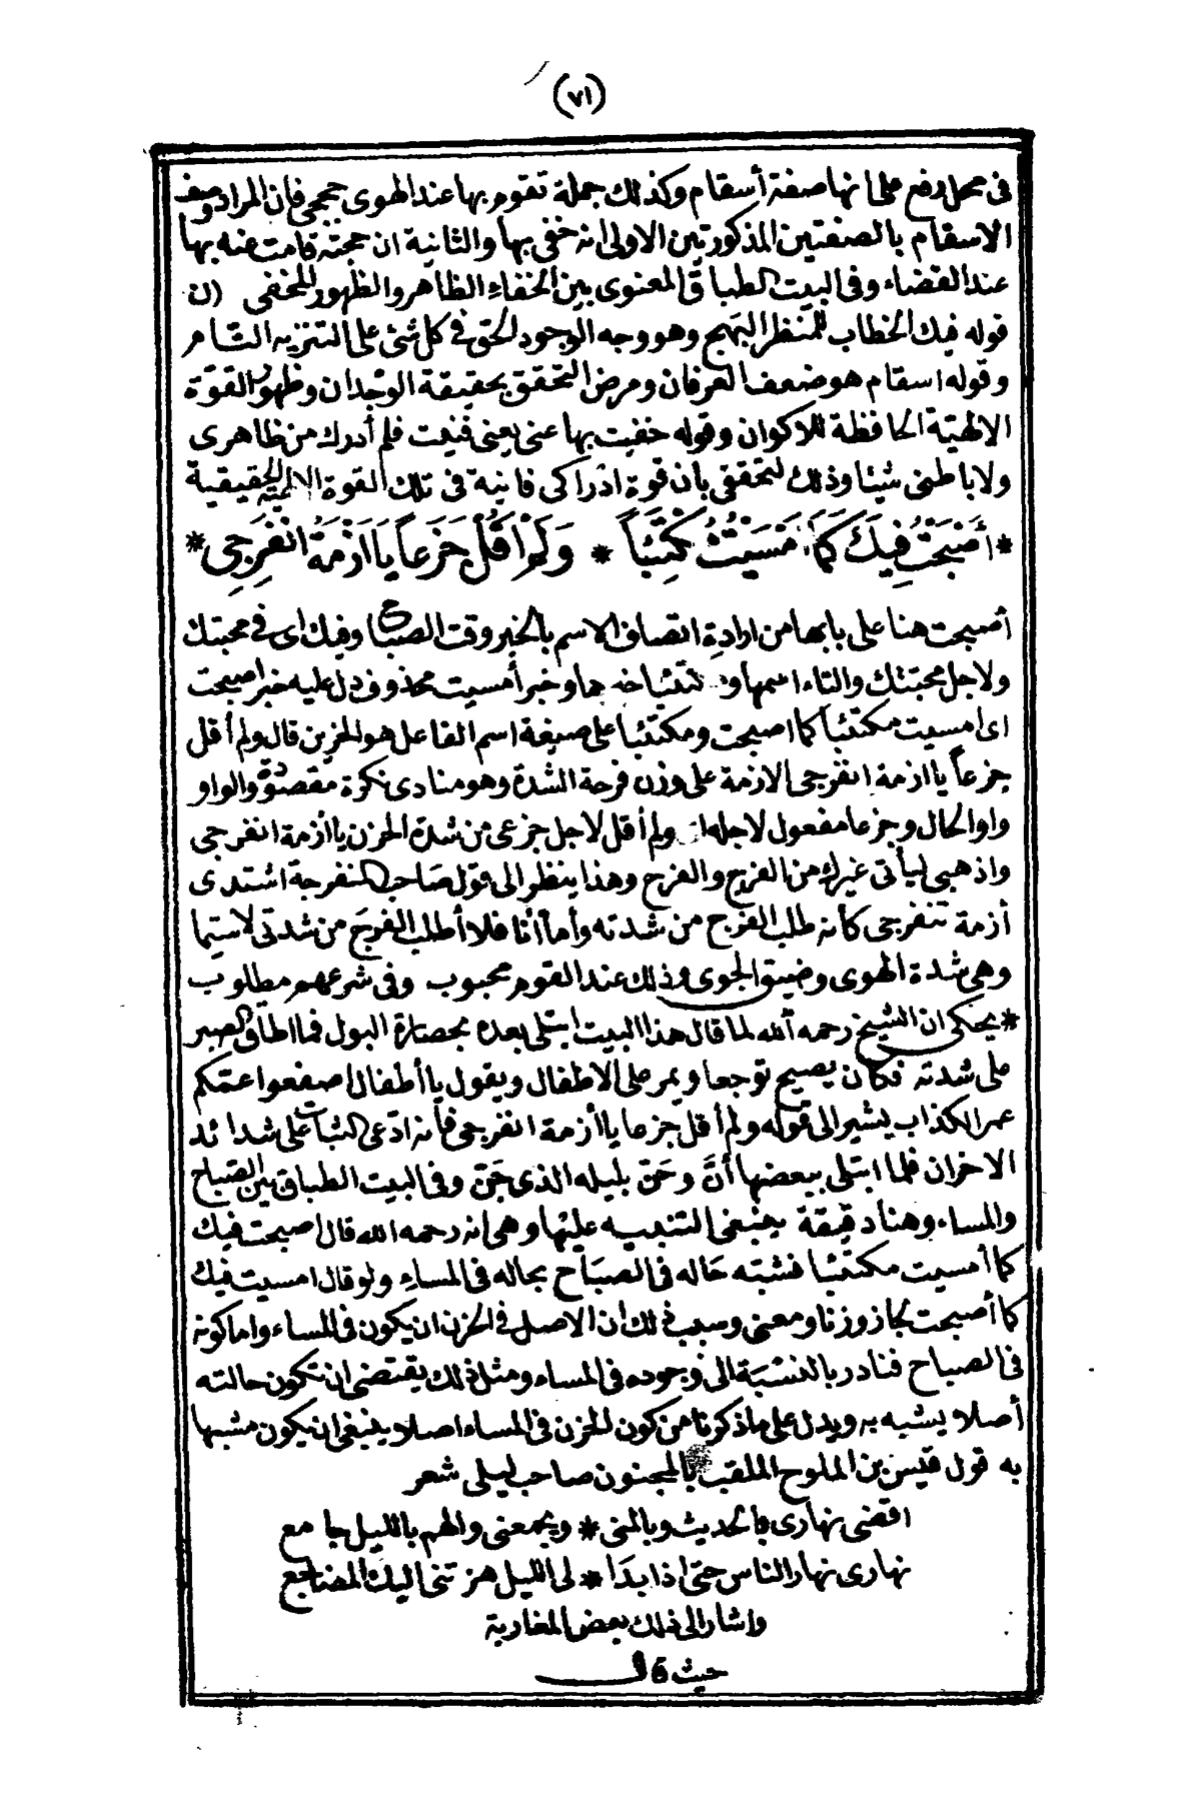 (٧١)
فى محل رفع على انها صفة أسقام وكذلك جملة تقوم بها عند الهوى حججى فان المراد وصف
الاسقام بالصفتين المذكورتين الاولى انه خفى بها والثانية ان حجته قامت عنه بها
عند القضاء وفى البيت الطباق المعنوى بين الخفاء الظاهر والظهور المخفى (ن
قوله فيك الخطاب للمنظر البهج وهو وجه الوجود الحق فى كل شئ على التنزيه التام
وقوله اسقام هو ضعف العرفان ومرض التحقق بحقيقة الوجدان وظهور القوّة
الالهية الحافظة للاكوان وقوله خفيت بها عنى يعنى فنيت فلم أدرك من ظاهرى
ولا باطنى شيئا وذلك لتحققى بان قوة ادراكى فانية فى تلك القوة الالهية الحقيقية
* أَصْبَحْتُ فِيكَ كَمَا أَمْسَيْتُ مُكْتَئِبًا * وَلَمْ أَقُلْ جَزَعاً يَا أَزْمَةُ انْفَرِجِى *
أصبحت هنا على بابها من ارادة اتصاف الاسم بالخبر وقت الصباح وفيك اى فى محبتك
ولاجل محبتك والتاء اسمها و مكتئبا خبرها وخبر أمسيت محذوف دل عليه خبر اصبحت
اى امسيت مكتئبا كما اصبحت ومكتئبا على صيغة اسم الفاعل هو الحزين قال ولم أقل
جزعاً يا ازمة انفرجى الازمة على وزن فرحة الشدة وهو منادى نكرة مقصودة والواو
واو الحال وجزعا مفعول لاجله اى ولم أقل لاجل جزعى من شدة الحزن يا أزمة انفرجى
واذهبى ليأتى غيرك من الفرج والفرح وهذا ينظر الى قول صاحب المنفرجة اشتدى
أزمة تنفرجى كأنه طلب الفرج من شدته وأما أنا فلا أطلب الفرج من شدتى لا سيما
وهى شدة الهوى وضيق الجوى وذلك عند القوم محبوب وفى شرعهم مطلوب
* يحكى ان الشيخ رحمه الله لما قال هذا البيت ابتلى بعده بحصارة البول فما اطاق الصبر
على شدته فكان يصيح توجعا ويمر على الاطفال ويقول يا أطفال اصفعوا عمّكم
عمر الكذاب يشير الى قوله ولم أقل جزعا يا أزمة انفرجى فأنه ادّعى الثبات على شدائد
الاخران فلما ابتلى ببعضها أنَّ وحَنّ بليله الذى جَنّ وفى البيت الطباق بين الصباح
والمساء وهنا دقيقة ينبغى التنبيه عليها وهى انه رحمه الله قال اصبحت فيك
كما أمسيت مكتئبا فشبه حاله فى الصباح بحاله فى المساء ولو قال امسيت فيك
كما أصبحت لجاز وزنا ومعنى وسبب ذلك ان الاصل فى الحزن ان يكون فى المساء واما كونه
فى الصباح فنادر بالنسبة الى وجوده فى المساء ومثل ذلك يقتضى ان تكون حالته
أصلا يشبه به ويدل على ماذكرنا من كون الحزن فى المساء اصلا ينبغى ان يكون مشبها
به قول قيس بن الملوح الملقب بالمجنون صاحب ليلى شعر
اقضى نهارى بالحديث وبالمنى * ويجمعنى والهم بالليل جامع
نهارى نهار الناس حتى اذا بدا * لى الليل هزتنى اليك المضاجع
واشار الى ذلك بعض المغاربة
حيث قال